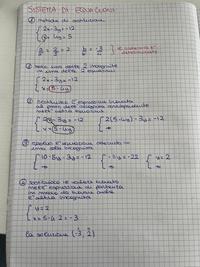 SISTEMA DI EQUAZIONI
① metodo di sostituzione
{ 2x - 3y = -12
x + 4y = 5
a/a' = 2/1 = 2 b/b' = -3/4 il sistema è determinato
① isolo una delle 2 incognite in una delle 2 equazioni
{ 2x - 3y = -12
x = 5 - 4y
② sostituisco l'espressione trovata
al posto della incognita corrispondente
nell'altra equazione
{ 2x - 3y = -12 { 2(5-4y) - 3y = -12
x = 5 - 4y
③ risolvo l'equazione ottenuta in
una sola incognita
{ 10 - 8y - 3y = -12 { -11y = -22 { y = 2
④ sostituisco il valore trovato
nell'espressione di partenza
in modo da trovare anche
l'altra incognita
{ y = 2
x = 5 - 4·2 = -3
la soluzione (-3, 2)